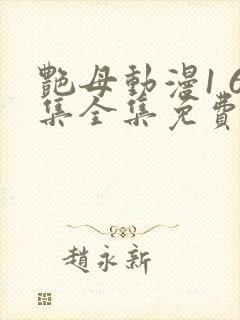 艷母動漫1 6
集全集免費
趙永新